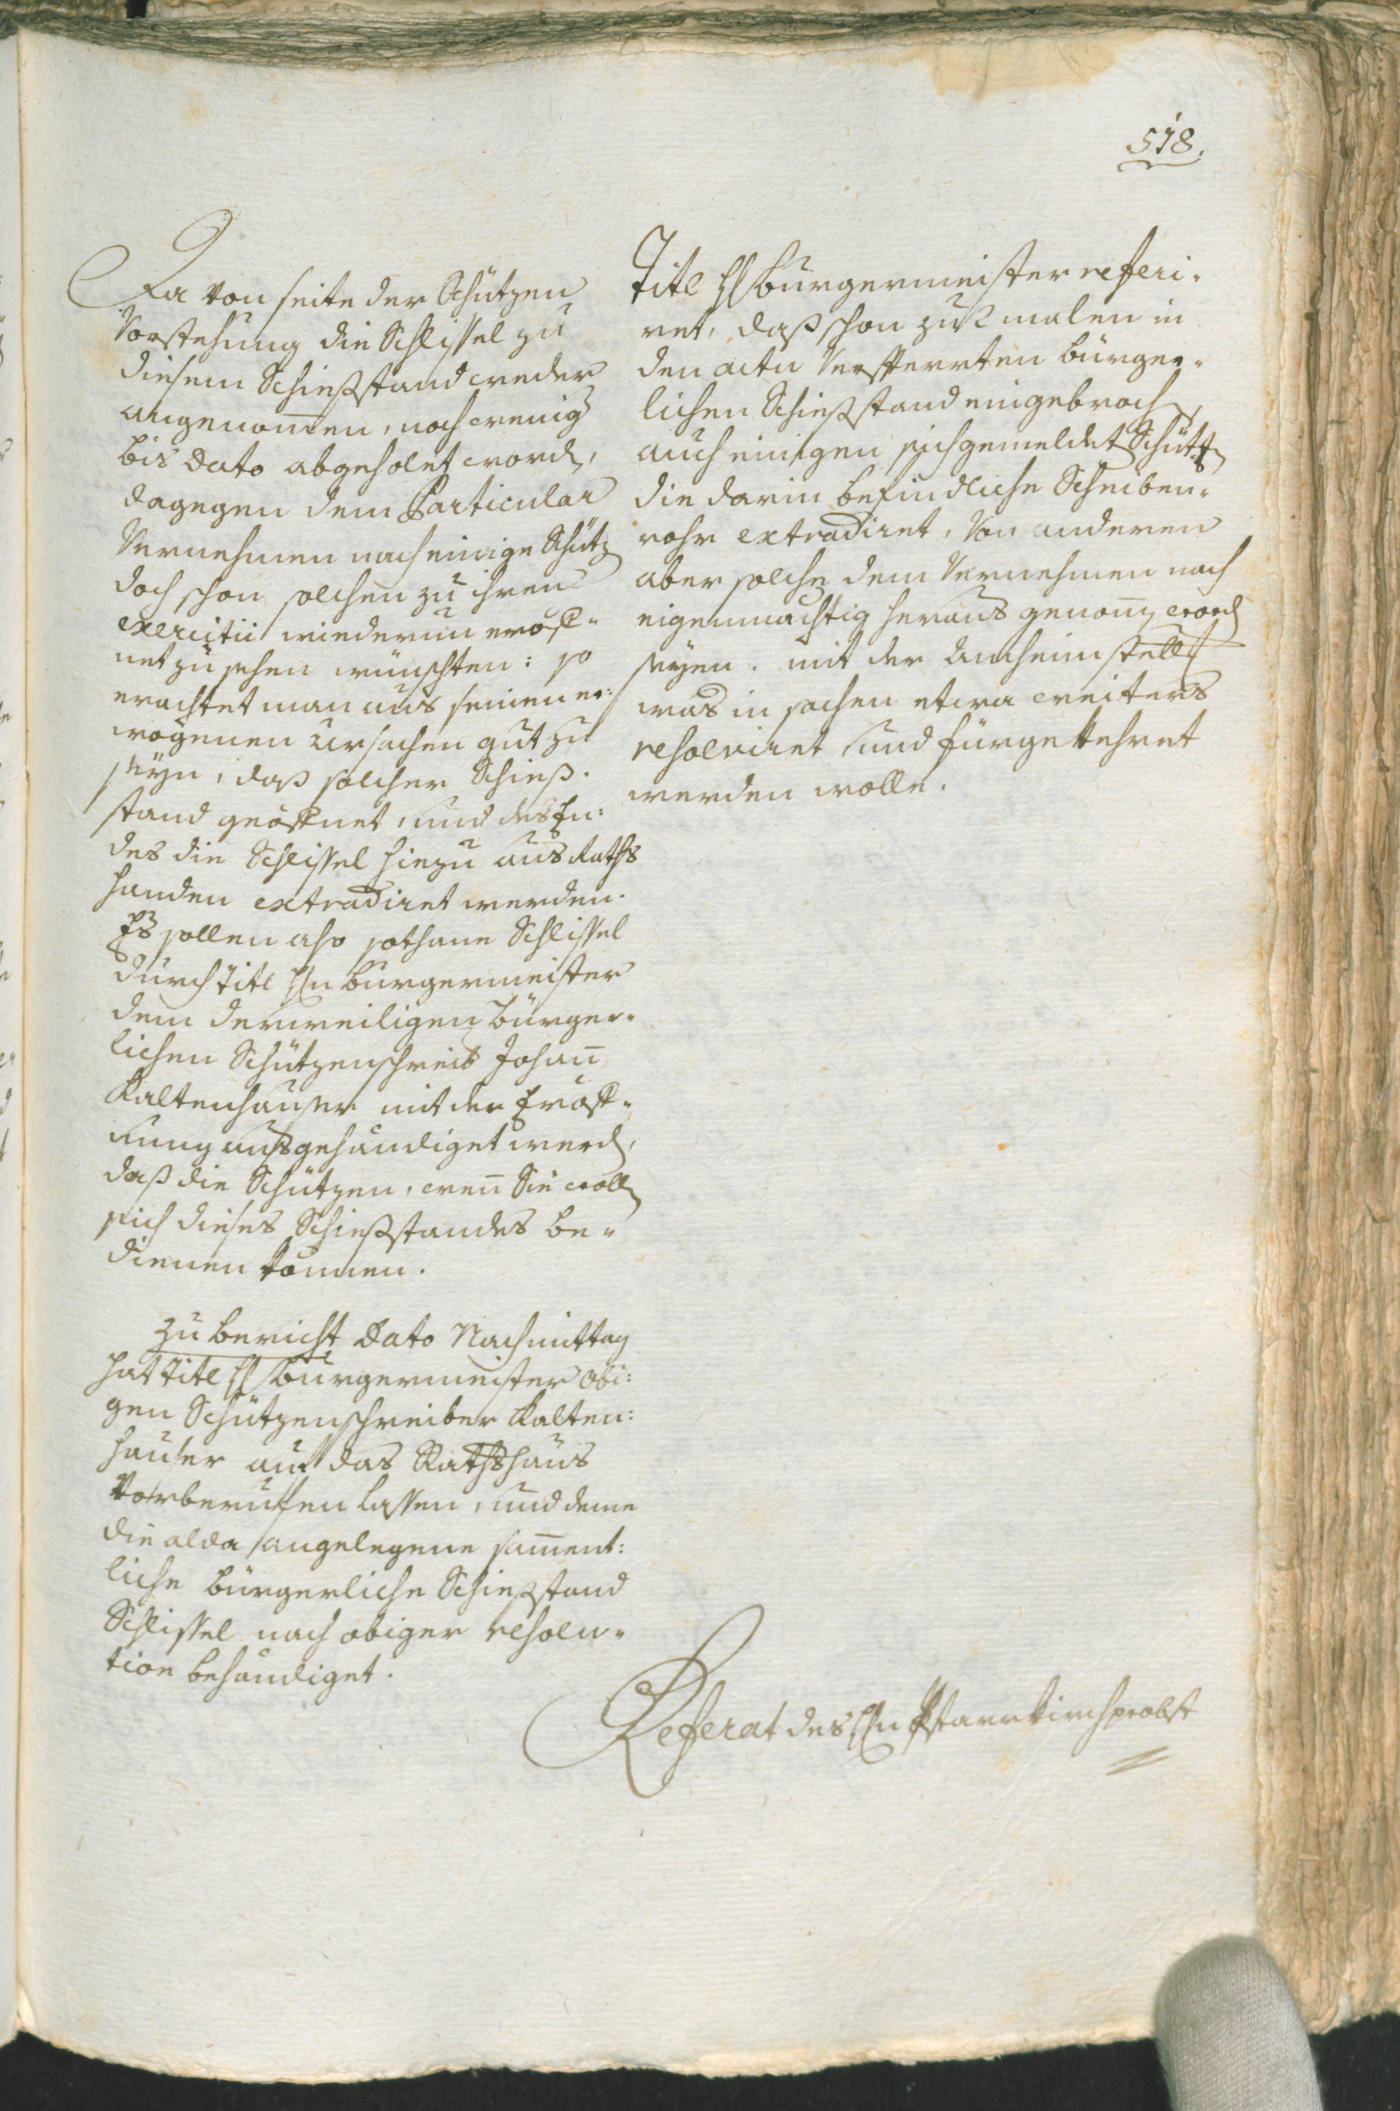 518.
Da von seite der Schützen
Vorstehung die Schlissel zu
diesem Schießstand weder
angenommen, noch wenig
bis dato abgeholet worden,
dagegen dem Particular
Vernehmen nach einige Schützen
doch schon solchen zu ihren
exercitii wiederum eröff-
net zu sehen wünschten: so
erachtet man aus seinen er-
wogenen Ursachen gut zu
seyn, daß solcher Schieß-
stand geöffnet, und des En-
des die Schlissel hiezu aus Raths
handen extradiret werden.
Es sollen also sothane Schlissel
durch Titl Hrn Burgermeister
dem derweiligen Bürger-
lichen Schützenschreiber Johann
Kaltenhauser mit der Eröff-
nung ausgehändiget werden,
daß die Schützen, wenn Sie wollen
sich dieses Schießstandes be-
dienen können.
Zu bericht Dato Nachmittag
hat Titl Hr Burgermeister obi-
gen Schützenschreiber Kalten-
hauser auf das Rathshaus
Vorberuffen lassen, und deme
die alda angelegene samment-
liche bürgerliche Schießstand
Schlissel nach obiger resolu-
tion behändiget.
Titl Hr Burgermeister referi-
ret, daß schon zu 2 malen in
den actu Versperrten bürger-
lichen Schießstand eingebrochen,
auch einigen sich gemeldet Schützen
die darin befindliche Scheiben-
rohr extradiret, Von anderen
aber solche dem Vernehmen nach
eigenmächtig heraus genommen worden
seyen. mit der Anheimstellung
was in sachen etwa weiters
resolviret und fürgekehret
werden wolle.
Referat des Hrn Pfarrkirchprobst